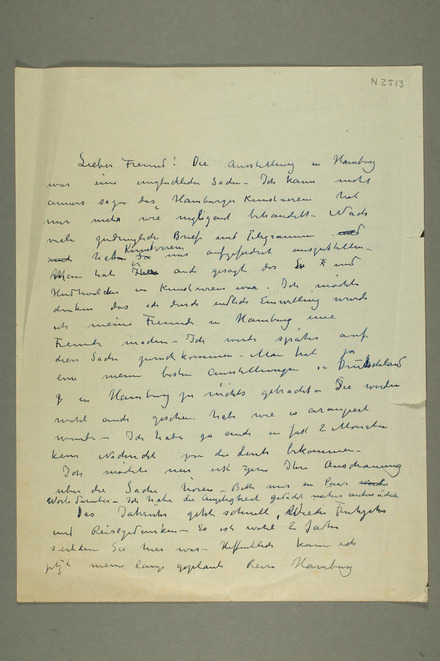 N 2513
Lieber Freund! Die Ausstellung in Hamburg
war eine unglückliche Sache - Ich kann nicht
anders sagen das Hamburger Kunstverein hat
mir mehr wie negligant behandelt - Nach
viele Briefe und Telegramme
Kunstverein mir aufgefordert auszustellen -
Man hat auch gesagt das und
in Kunstverein war - Ich möchte
denken das ich durch endlich Einwilling würde
ich meine Freunde in Hamburg eine
Freude machen - Ich werde später auf
diese Sache zurück kommen - Man hat ja
eine meine besten Ausstellungen in Deutschland
in Hamburg zu nichts gebracht - Sie werden
wohl auch gesehen hat wie es arrangiert
wurde - Ich habe ja auch in fast 2 Monaten
kein Nachricht von die Leute bekommen -
Ich möchte nun sehr gern Ihre Anschauung
über die Sache hören - Bitte mir ein Paar
Worte darüber - Ich habe die
Das Jahr geht schnell, Wieder Frühjahr
und Reisegedanken - Es ist wohl 2 Jahre
seitdem Sie hier war - Hoffentlich kann ich
jetzt meine lange geplante Reise Hamburg